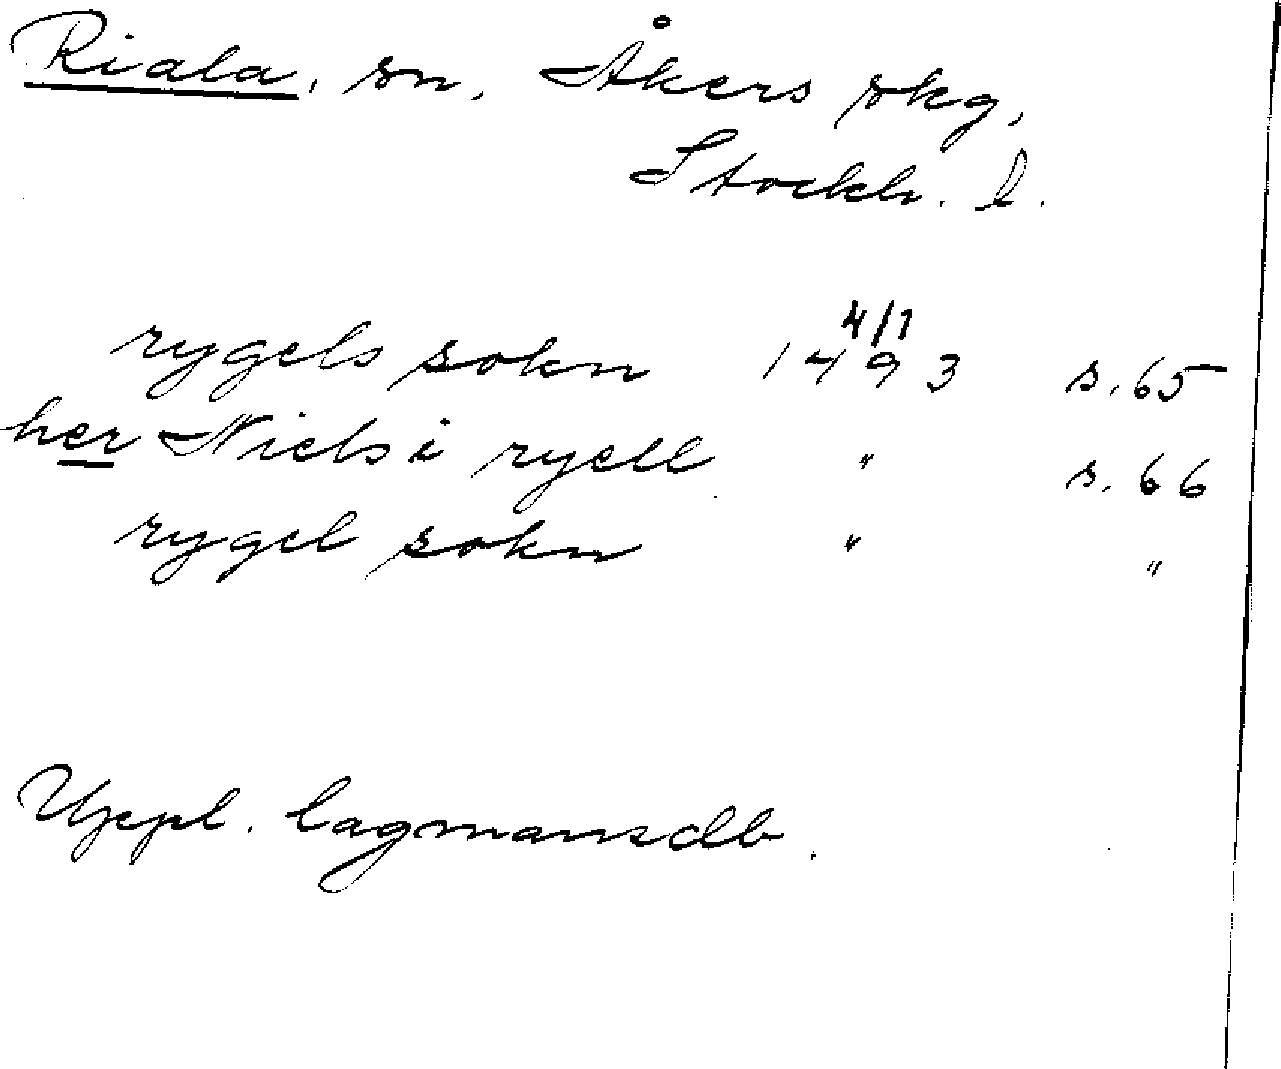 Riala, sn, Åkers skg,
Stockh. l.
4/1
rygels sokn 1493 s. 65
her Niels i ryell " s. 66
rygel sokn " "
Uppl. lagmansdb.